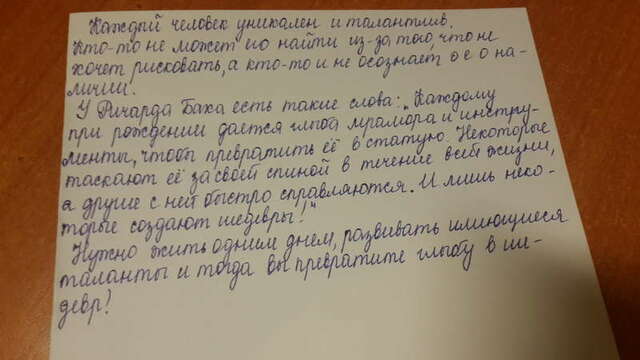 Каждый человек уникален и талантлив.
Кто-то не может его найти из-за того, что не
хочет рисковать, а кто-то и не осознает о е о на-
личии.
У Ричарда Баха есть такие слова: „Каждому
при рождении дается глыба мрамора и инстру-
менты, чтобы превратить её в статую. Некоторые
таскают её за своей спиной в течение всей жизни,
а другие с ней быстро справляются. И лишь неко-
торые создают шедевры!"
Нужно жить одним днем, развивать имеющиеся
таланты и тогда вы превратите глыбу в ше-
девр!